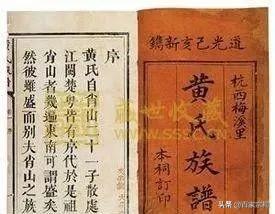 道光己亥新鐫
杭西梅溪里
黃氏族譜
本祠訂印
序
黃氏自肖山十一子散處
江閩楚粵皆有序代於是祖
肖山者幾遍東南可謂盛
然彼雖盛而別夫肖山之族
盛世收藏